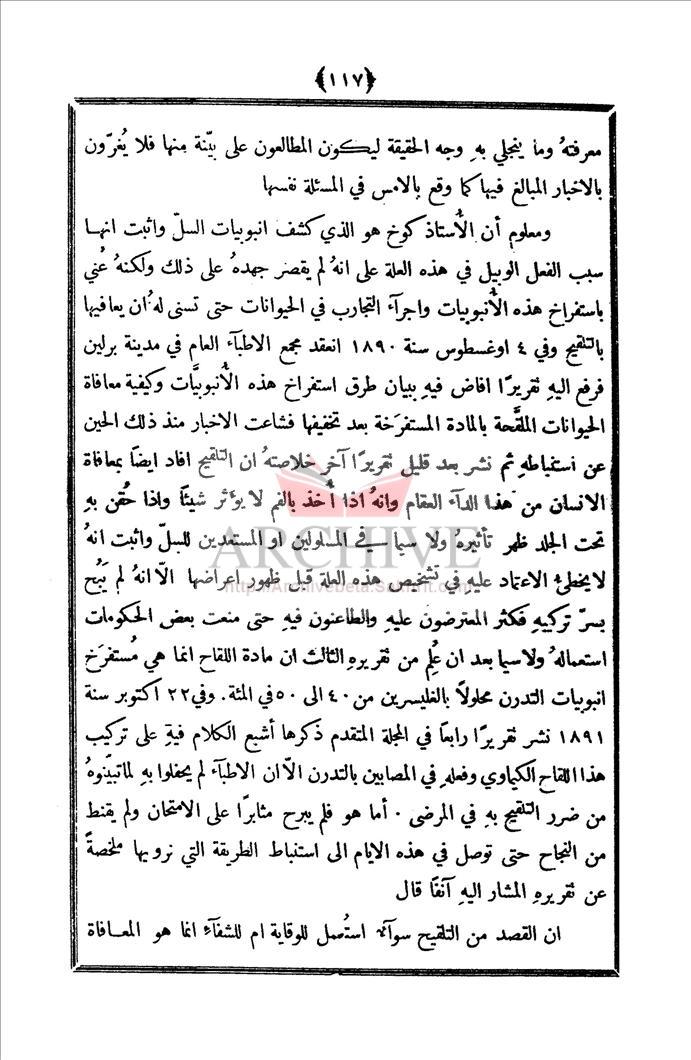 ﴿١١٧﴾
معرفتهُ وما ينجلي بهِ وجه الحقيقة ليكون المطالعون على بيّنة منها فلا يُغرّون
بالاخبار المبالغ فيها كما وقع بالامس في المسئلة نفسها
ومعلوم أن الأُستاذ كوخ هو الذي كشف انبوبيات السلّ واثبت انها
سبب الفعل الوبيل في هذه العلة على انهُ لم يقصر جهدهُ على ذلك ولكنهُ عُني
باستفراخ هذه الأُنبوبيات واجرآء التجارب في الحيوانات حتى تسنى لهُ ان يعافيها
بالتلقيح وفي ٤ اوغسطوس سنة ١٨٩٠ انعقد مجمع الاطبآء العام في مدينة برلين
فرفع اليهِ تقريرًا افاض فيهِ بيان طرق استفراخ هذه الأُنبوبيَّات وكيفية معافاة
الحيوانات الملقَّحة بالمادة المستفرَخة بعد تخفيفها فشاعت الاخبار منذ ذلك الحين
عن استنباطهِ ثم نشر بعد قليل تقريرًا آخر خلاصتهُ ان التلقيح افاد ايضًا بمعافاة
الانسان من هذا الدآء العقام وانهُ اذا أُخذ بالفم لا يؤثر شيئًا واذا حُقن بهِ
تحت الجلد ظهر تأثيرهُ ولا سيما في المسلولين او المستعدين للسلّ واثبت انهُ
لا يخطئ الاعتماد عليهِ في تشخيص هذه العلة قبل ظهور اعراضها الّا انهُ لم يَبُح
بسرّ تركيبهِ فكثر المعترضون عليهِ والطاعنون فيهِ حتى منعت بعض الحكومات
استعمالهُ ولاسيما بعد ان عُلم من تقريرهِ الثالث ان مادة اللقاح انما هي مُستفرَخ
انبوبيات التدرن محلولاً بالغليسرين من ٤٠ الى ٥٠ في المئة. وفي ٢٢ اكتوبر سنة
١٨٩١ نشر تقريرًا رابعًا في المجلة المتقدم ذكرها أشبع الكلام فيهِ على تركيب
هذا اللقاح الكيماوي وفعلهِ في المصابين بالتدرن الّا ان الاطبآء لم يحفلوا بهِ لما تبيّنوهُ
من ضرر التلقيح بهِ في المرضى ٠ أما هو فلم يبرح مثابرًا على الامتحان ولم يقنط
من النجاح حتى توصل في هذه الايام الى استنباط الطريقة التي نرويها ملخصةً
عن تقريرهِ المشار اليهِ آنفًا قال
ان القصد من التلقيح سوآء استُعمل للوقاية ام للشفآء انما هو المعافاة
ARCHIVE